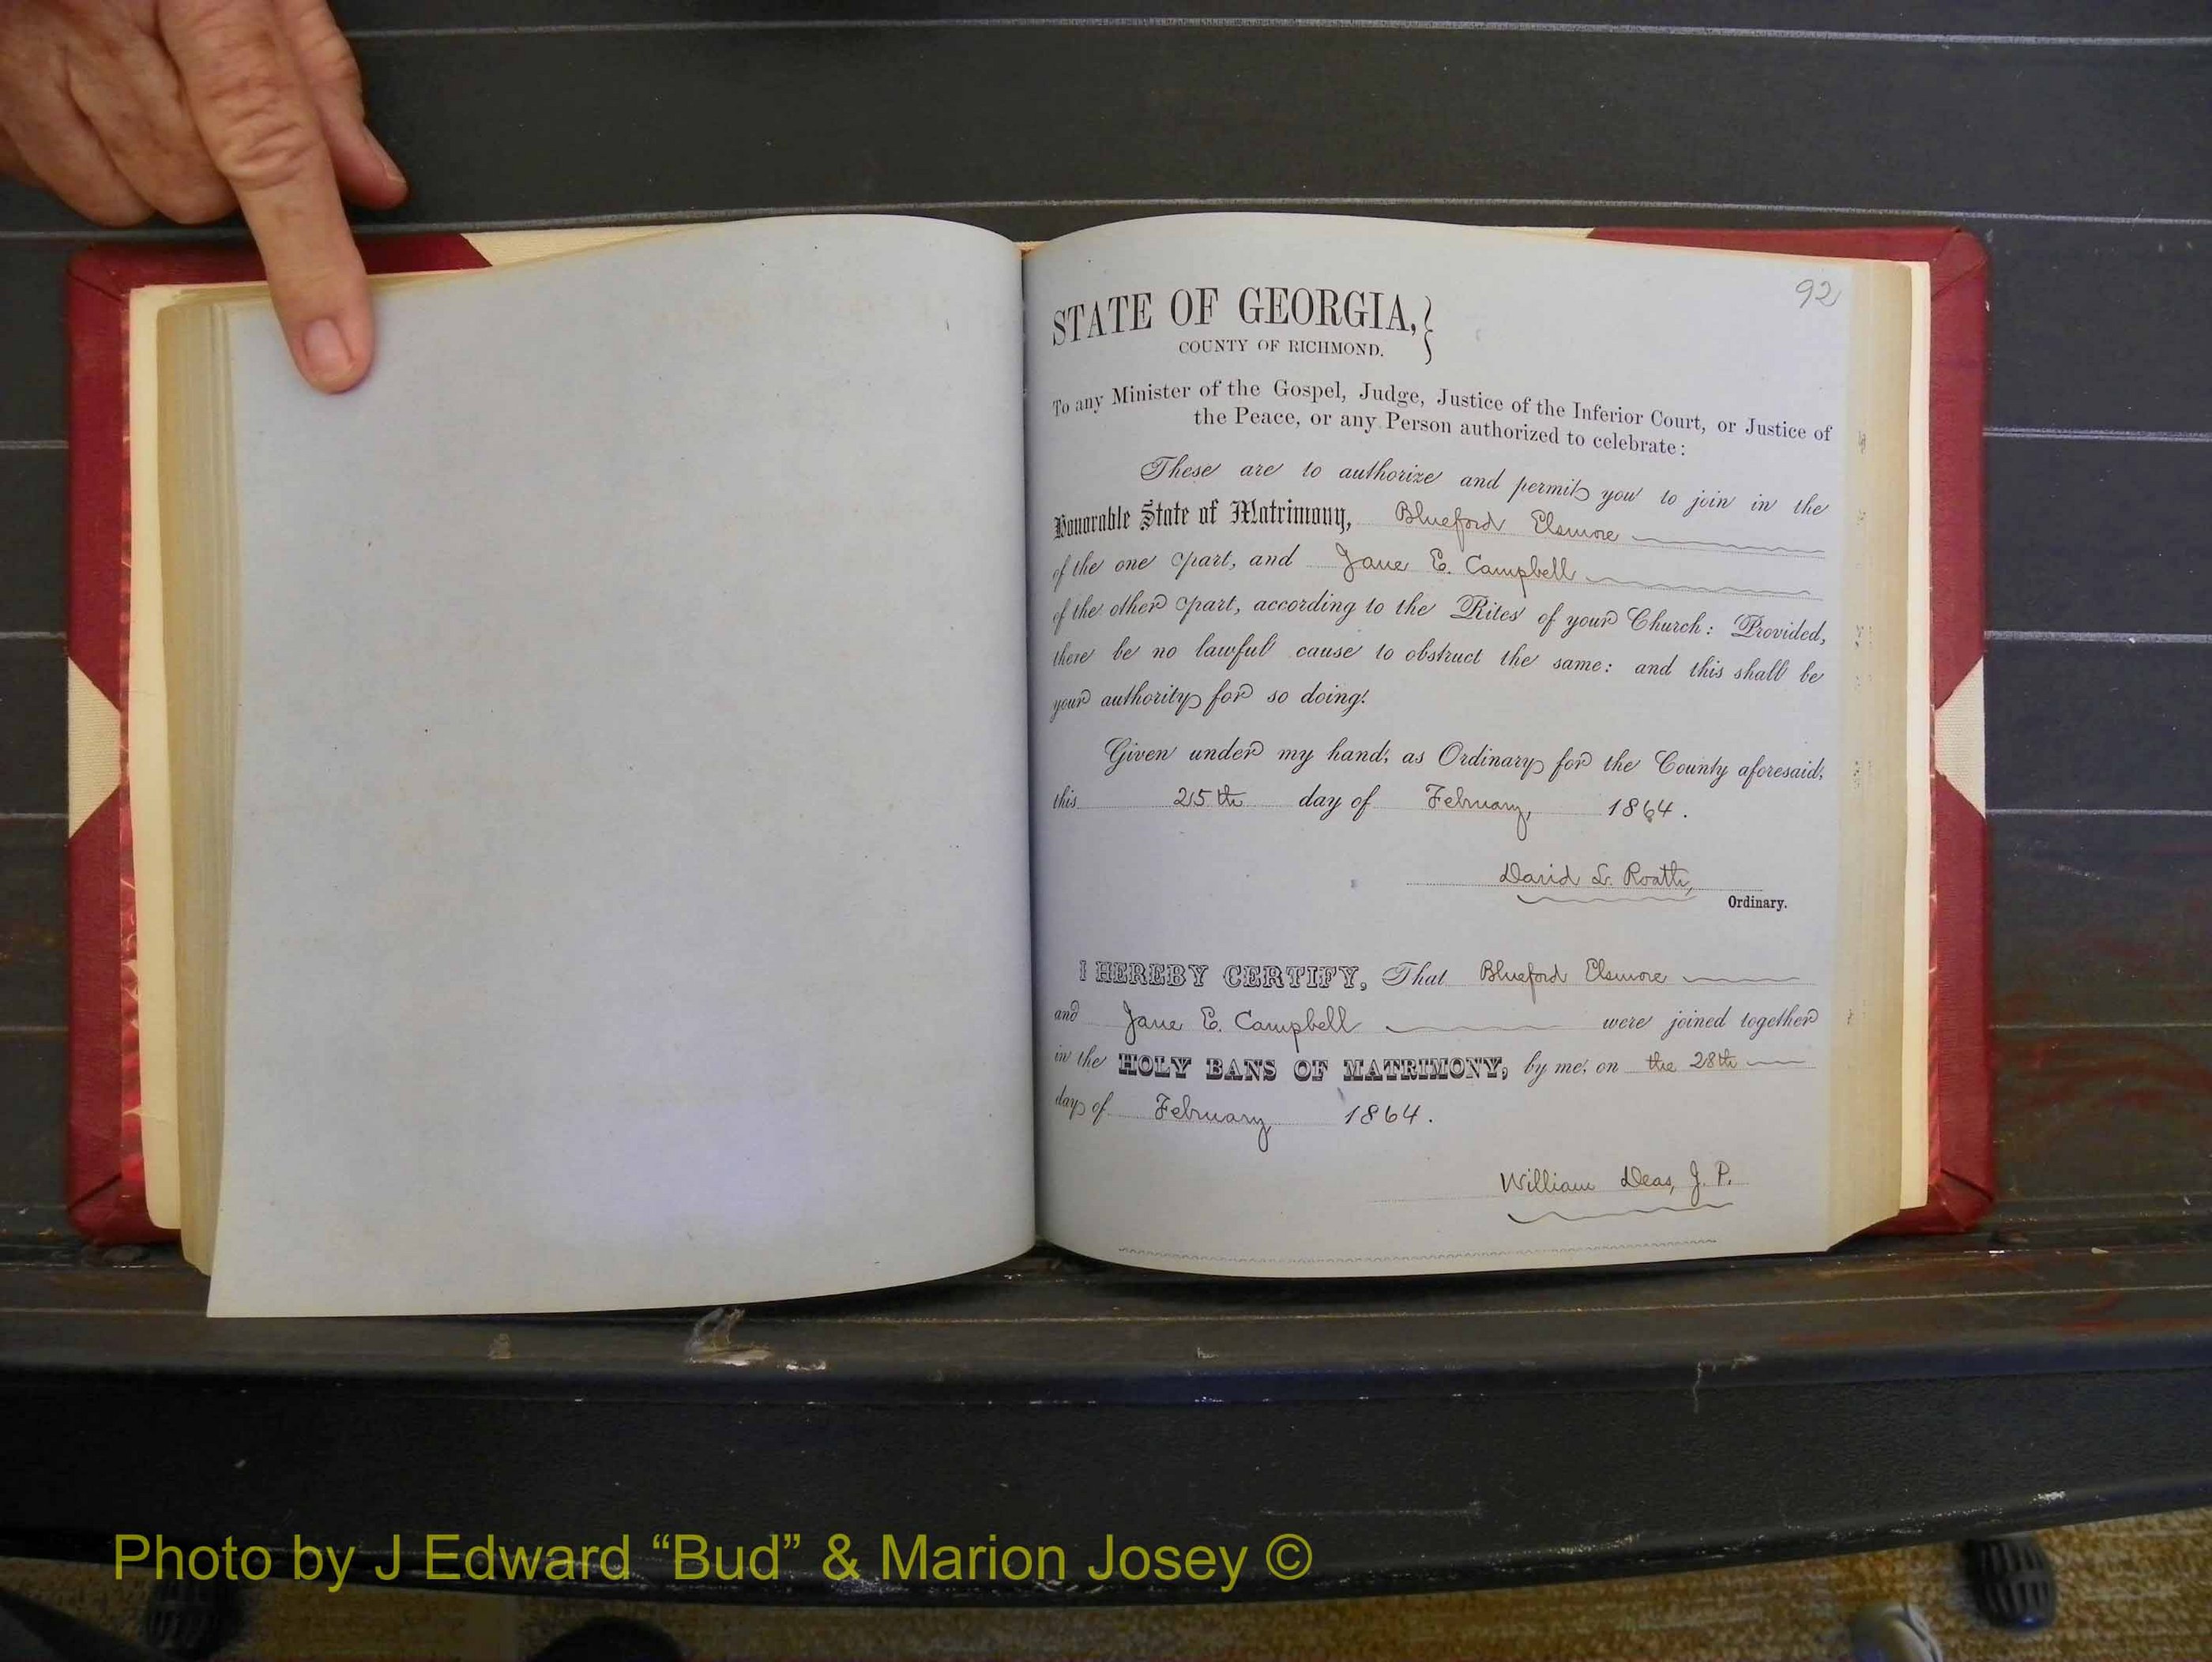 92
STATE OF GEORGIA,
COUNTY OF RICHMOND.
To any Minister of the Gospel, Judge, Justice of the Inferior Court, or Justice of
the Peace, or any Person authorized to celebrate:
These are to authorize and permit you to join in the
Honorable State of Matrimony, Blueford Elsmore
of the one part, and Jane E. Campbell
of the other part, according to the Rites of your Church: Provided,
there be no lawful cause to obstruct the same: and this shall be
your authority for so doing.
Given under my hand, as Ordinary for the County aforesaid,
this 25th day of February, 1864.
David L. Roath,
Ordinary.
I HEREBY CERTIFY, That Blueford Elsmore
and Jane E. Campbell were joined together
in the HOLY BANS OF MATRIMONY, by me, on the 28th
day of February 1864.
William Deas, J. P.
Photo by J Edward “Bud” & Marion Josey ©